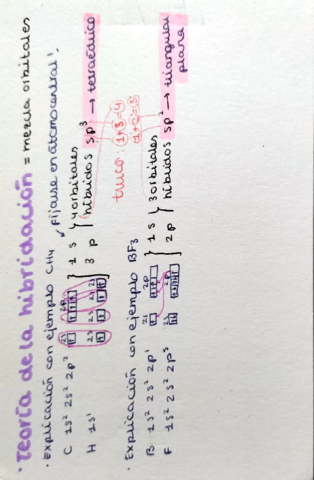 · Teoría de la hibridación = mezcla orbitales
· Explicación con ejemplo CH4 ✓ Fijarse en átomo central!
C 1s² 2s² 2p² 2s 2p } 1 s } 4 orbitales
H 1s¹ } 3 p } híbridos sp³ → tetraédrico
truco: 1+3=4
1+2=3
· Explicación con ejemplo BF3
B 1s² 2s² 2p¹ 2s 2p } 1 s } 3 orbitales
F 1s² 2s² 2p⁵ } 2 p } híbridos sp² → triangular plana